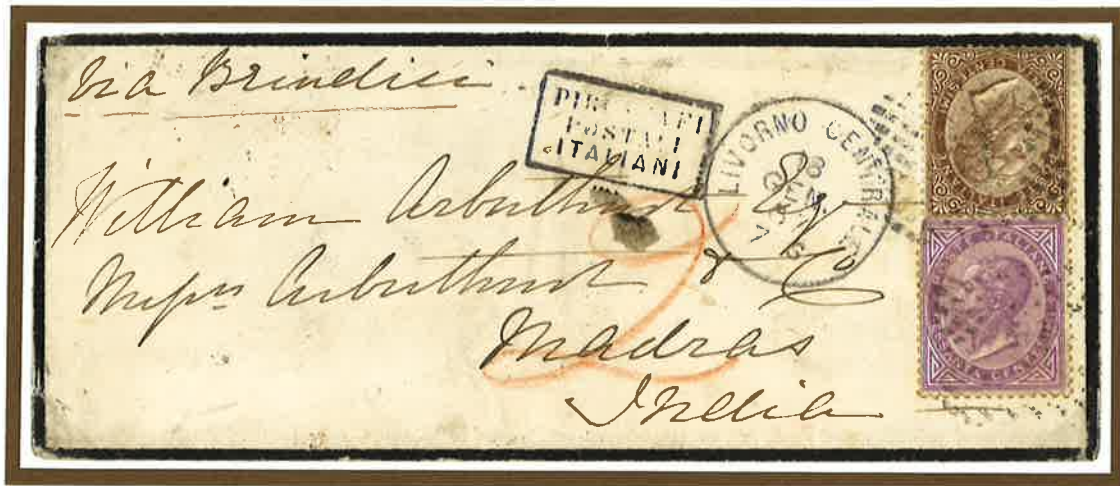 Via Brindisi
PIROSCAFI
POSTALI
ITALIANI
LIVORNO CENTRALE
William Arbuthnot Esqr
Messrs Arbuthnot & Co
Madras
India
2